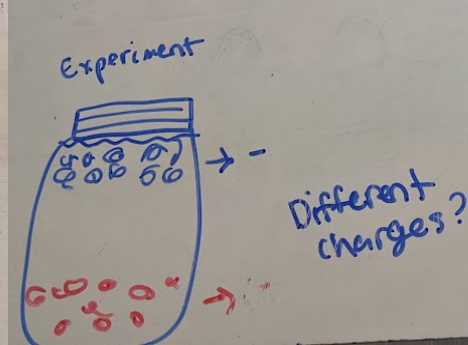 Experiment
→ -
Different
charges?
→